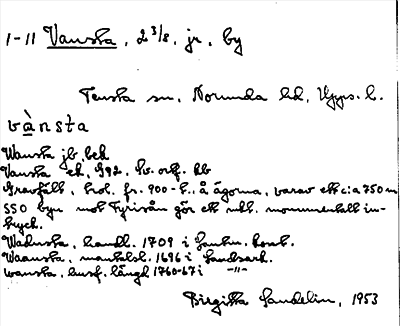 1-11 Vansta, 2 3/8, jr, by
Tensta sn, Norunda hd, Upps. l.
vànsta
Wansta jb, bek
Vansta ek, G92, hv. orf. bb
Gravfält, trol. fr. 900-t., å ägorna, varav ett cia 750 m
SSO byn mot Fyrisån gör ett mkt. monumentalt in-
tryck.
handl. 1709 i Lantm. kont.
Waansta, mantalsl. 1696 i Landsark.
wansta, husf. längd 1760-67 i -"-
Birgitta Sandelin, 1953